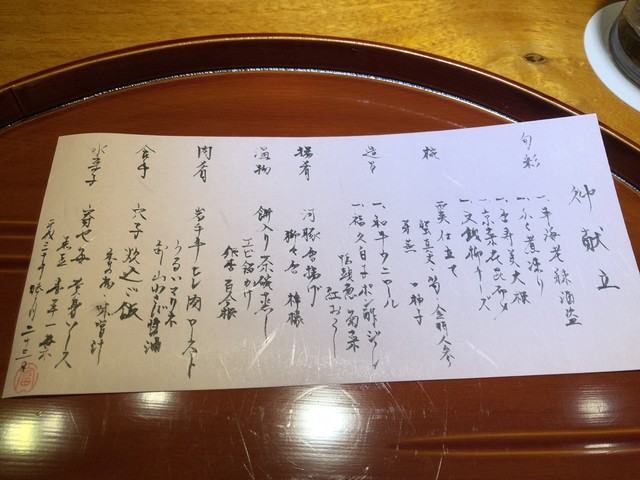 御献立
旬彩
一、平海老緑酒盗
一、ふぐ煮凍り
一、唐寿美大根
一、京菜花昆布〆
一、文銭柳チーズ
椀
霙仕立て
蟹真丈、筍、金時人参
芽蕪 口柚子
造り
一、和牛ウニロール
一、福久目子ポン酢ジュレ
鮟鱇魚 菊菜
紅おろし
揚肴
河豚唐揚げ
獅々唐 檸檬
温物
餅入り茶碗蒸し
エビ銀餡かけ
銀杏 百合根
肉肴
岩手牛ヒレ肉ロースト
うるいマリネ
山わさび醤油
食事
穴子炊込ご飯
香の物、味噌汁
水菓子
苺ソース
平成三十年 睦月 二十三日